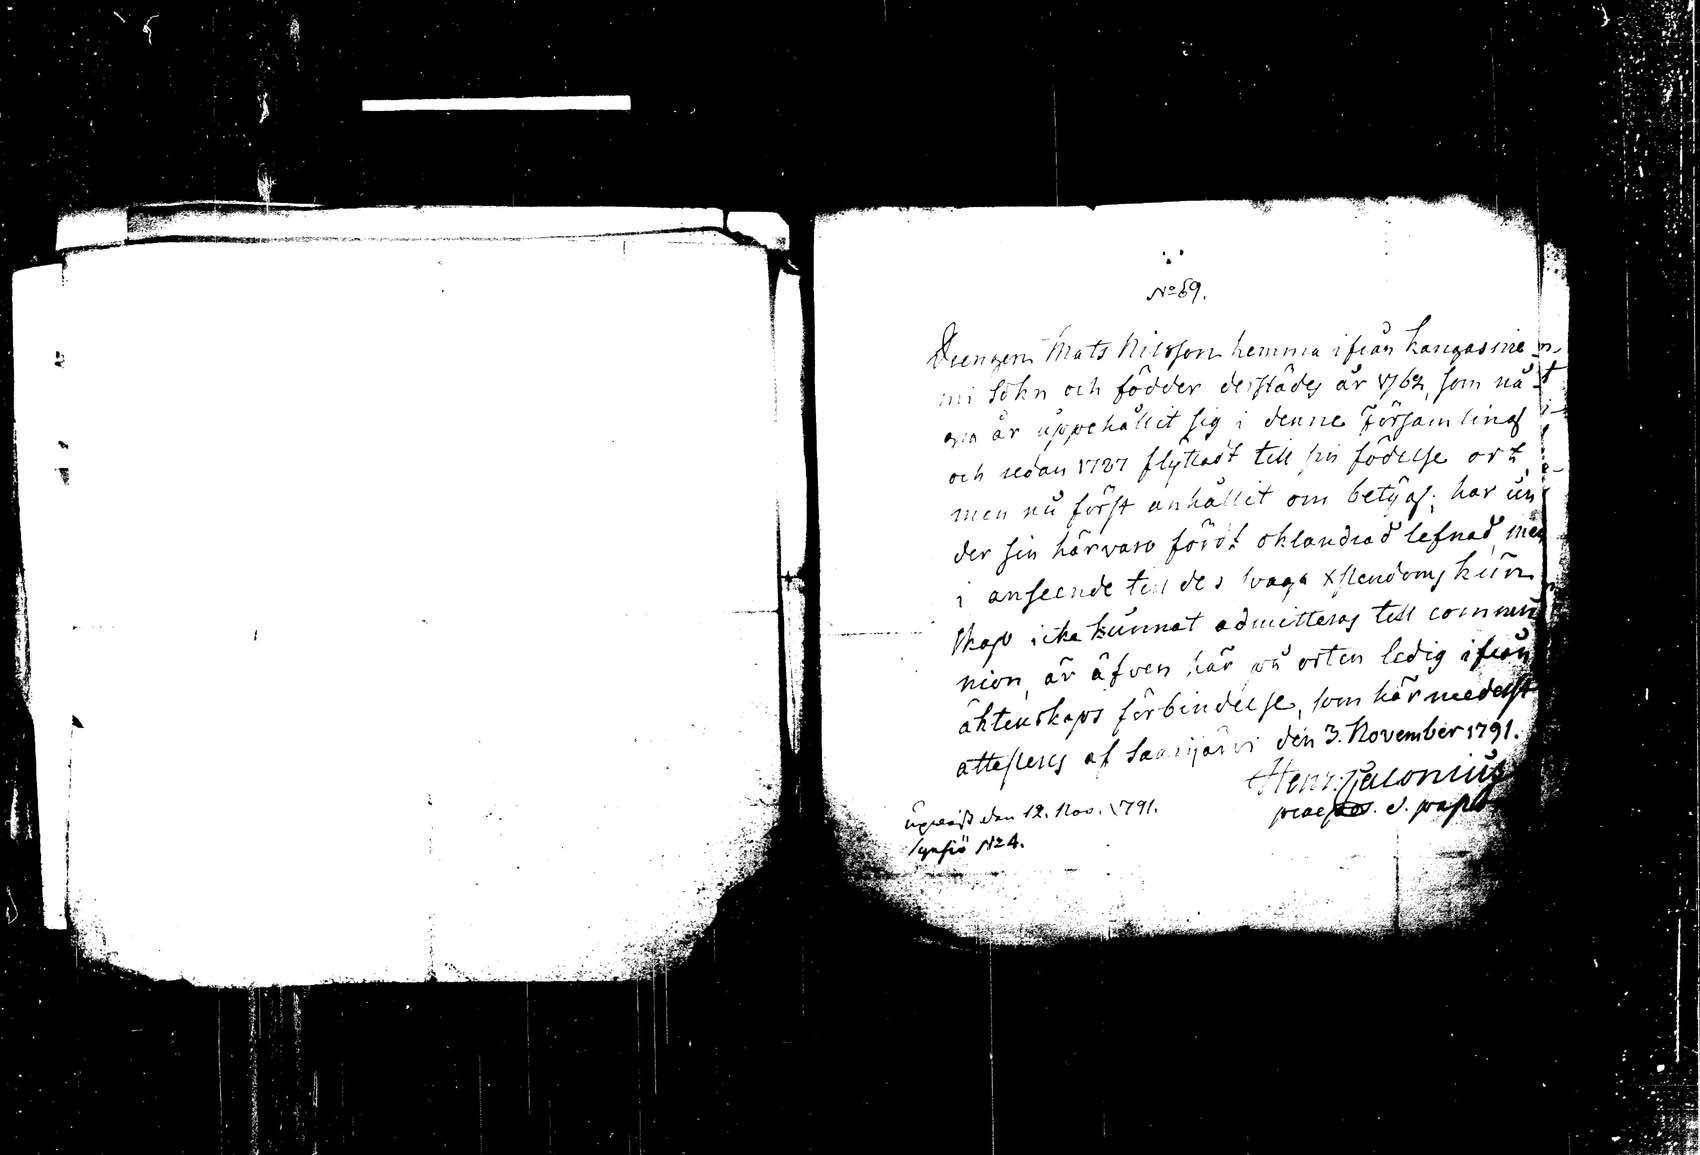 No 69.
Drengen Mats Nilsson hemma ifrån Kangasnie
mi Sökn och födder derstädes år 1762, som nå
gra år uppehållit sig i denne Församling
och sedan 1787 flyttadt till sin födelse ort,
men nu först anhållit om betyg; har un
der sin härvaro fördt oklandrad lefnad, men
i anseende till des svaga Xstendoms kun
skap icke kunnat admitteras till commu
nion, är äfven här på orten ledig ifrån
äktenskaps förbindelse, som härmedelst
attesteras af Saarijärvi den 3. November 1791.
Henr: Calonius
praepos. e. past
Upvist den 12. Nov. 1791.
Synsiö No 4.